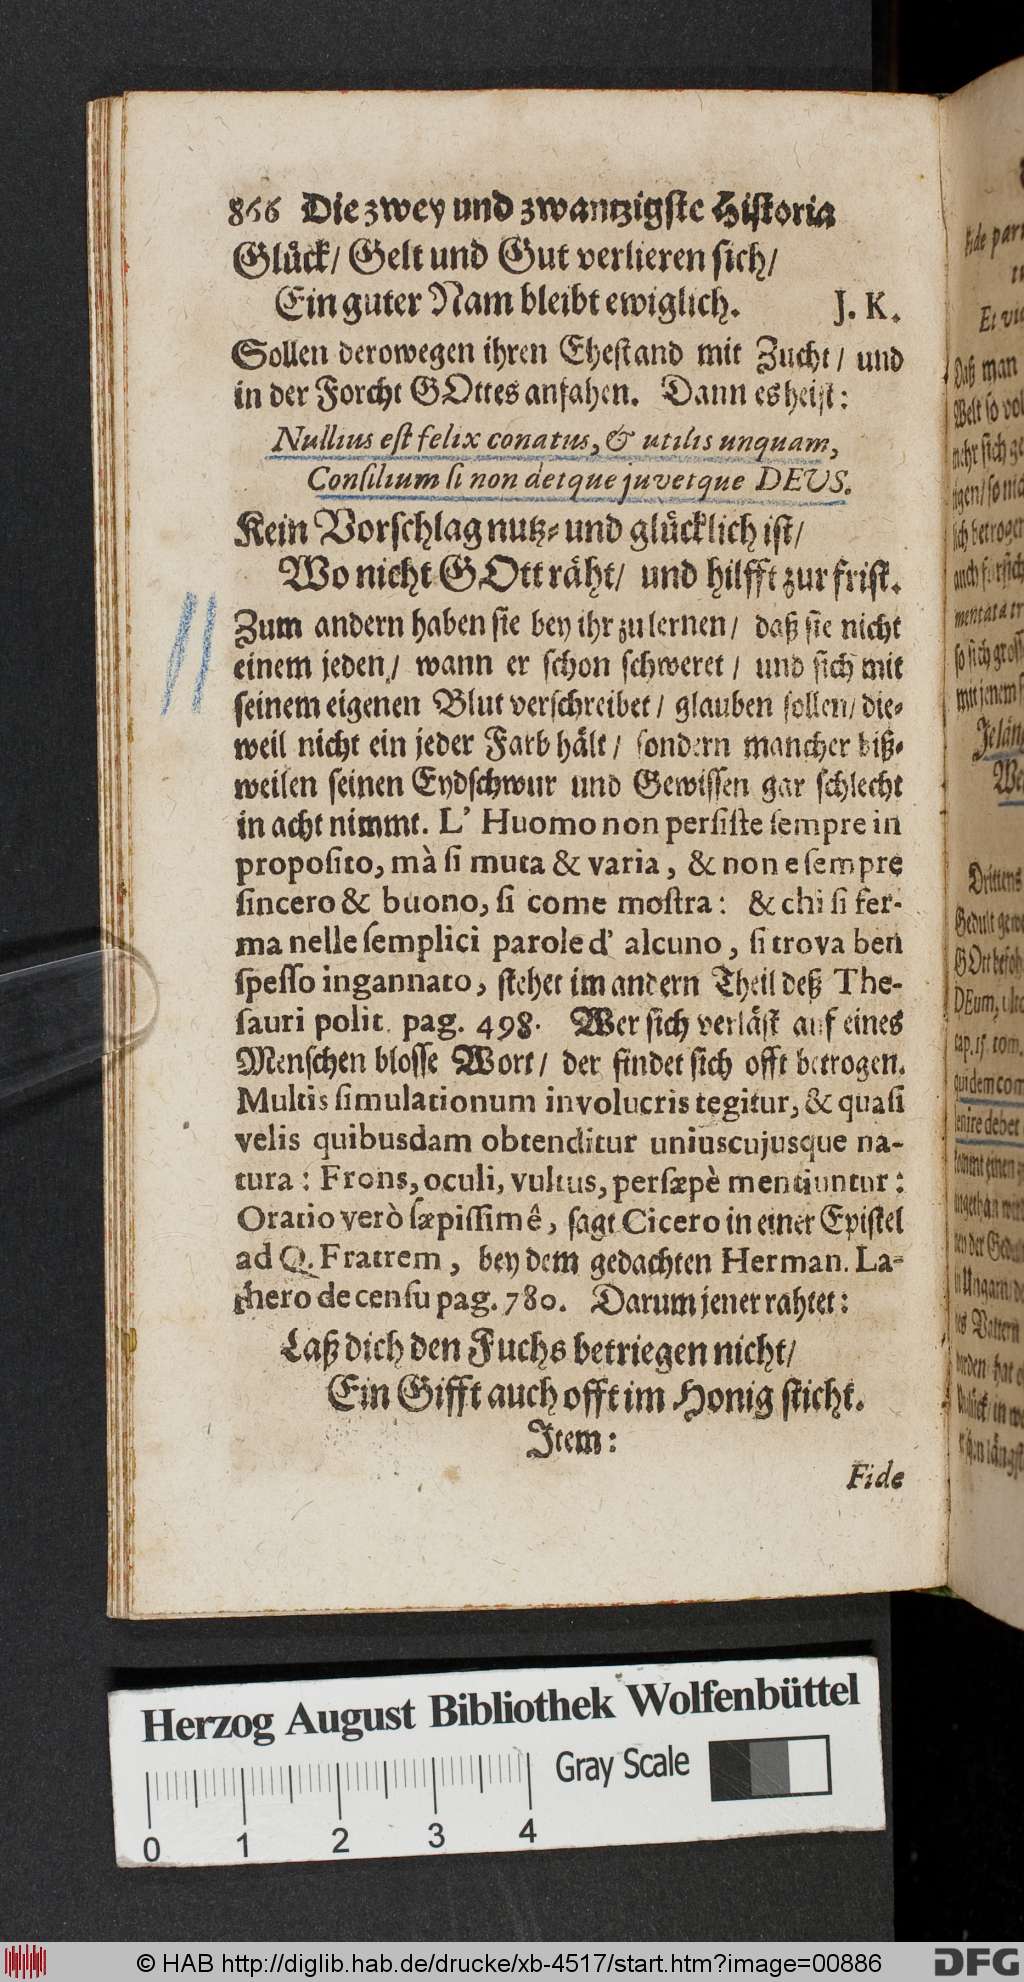 866 Die zwey und zwantzigste Historia
Gluͤck/ Gelt und Gut verlieren sich/
Ein guter Nam bleibt ewiglich. J. K.
Sollen derowegen ihren Ehestand mit Zucht/ und
in der Forcht GOttes anfahen. Dann es heist:
Nullius est felix conatus, & utilis unquam,
Consilium si non detque juvetque DEUS.
Kein Vorschlag nutz- und gluͤcklich ist/
Wo nicht GOtt raͤht/ und hilfft zur frist.
Zum andern haben sie bey ihr zu lernen/ daß sie nicht
einem jeden/ wann er schon schweret/ und sich mit
seinem eigenen Blut verschreibet/ glauben sollen/ die-
weil nicht ein jeder Farb haͤlt/ sondern mancher biß-
weilen seinen Eydschwur und Gewissen gar schlecht
in acht nimmt. L' Huomo non persiste sempre in
proposito, mà si muta & varia, & non e sempre
sincero & buono, si come mostra: & chi si fer-
ma nelle semplici parole d' alcuno, si trova ben
spesso ingannato, stehet im andern Theil deß The-
sauri polit. pag. 498. Wer sich verlaͤst auf eines
Menschen blosse Wort/ der findet sich offt betrogen.
Multis simulationum involucris tegitur, & quasi
velis quibusdam obtenditur uniuscujusque na-
tura: Frons, oculi, vultus, persæpè mentiuntur:
Oratio verò sæpissimê, sagt Cicero in einer Epistel
ad Q. Fratrem, bey dem gedachten Herman. La-
thero de censu pag. 780. Darum jener rahtet:
Laß dich den Fuchs betriegen nicht/
Ein Gifft auch offt im Honig sticht.
Item:
Fide
Herzog August Bibliothek Wolfenbüttel
Gray Scale
0 1 2 3 4
© HAB http://diglib.hab.de/drucke/xb-4517/start.htm?image=00886
DFG